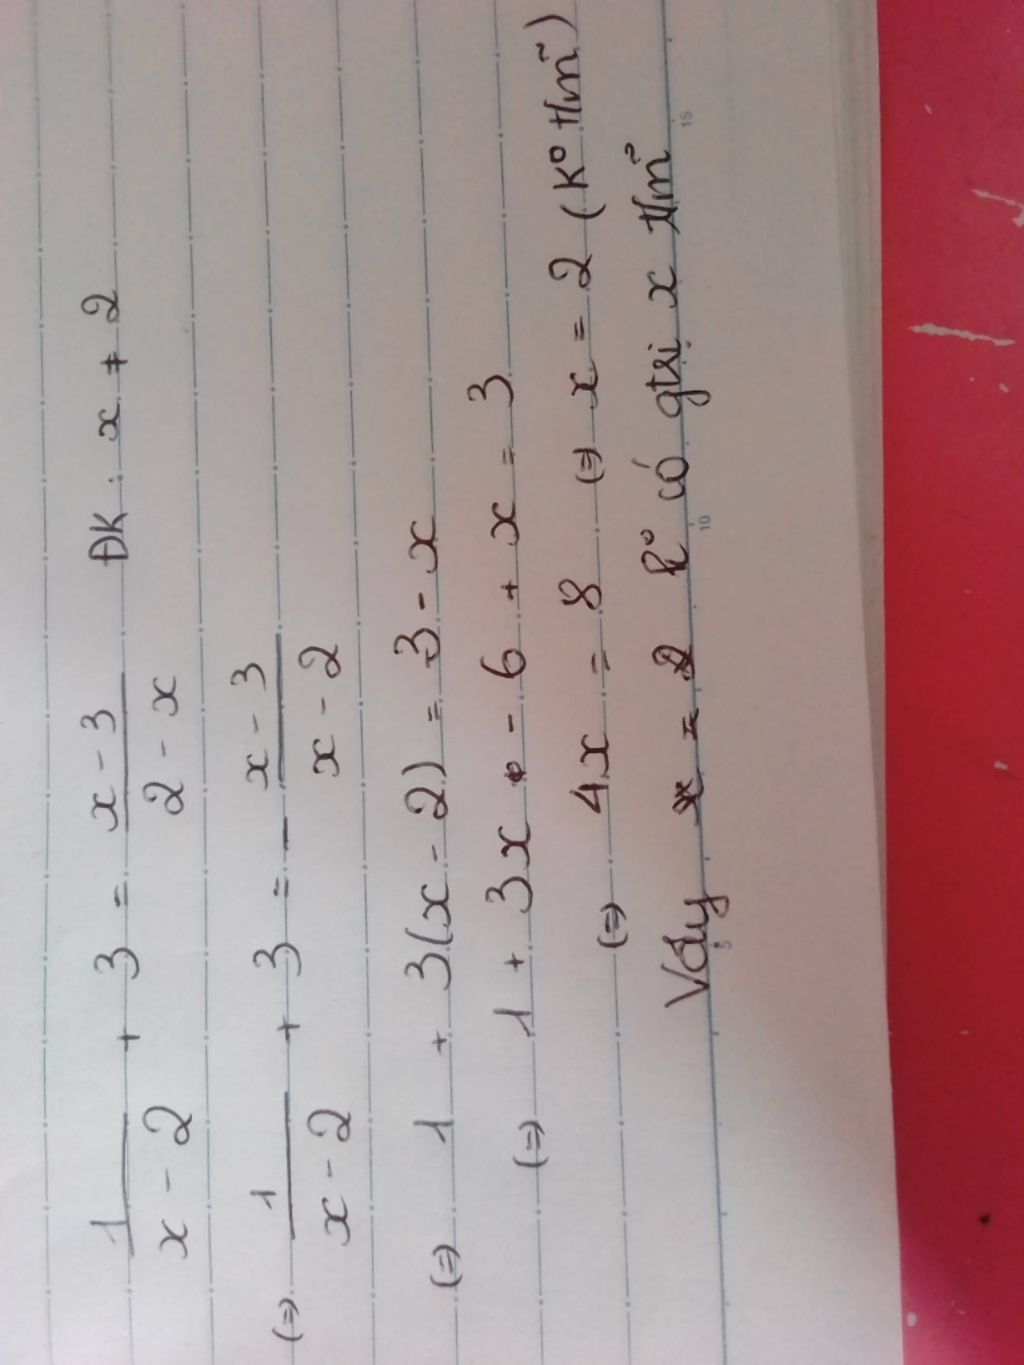 1/(x - 2) + 3 = (x - 3)/(2 - x) ĐK : x ≠ 2
(=) 1/(x - 2) + 3 = - (x - 3)/(x - 2)
(=) 1 + 3(x - 2) = 3 - x
(=) 1 + 3x - 6 + x = 3
(=) 4x = 8 (=) x = 2 (K° t/m~)
Vậy k° có gtrị x t/m~